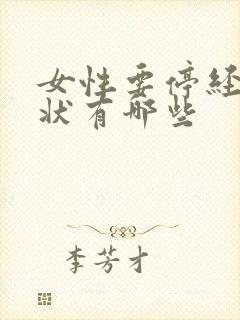 女性要停经
状有哪些
李芳才